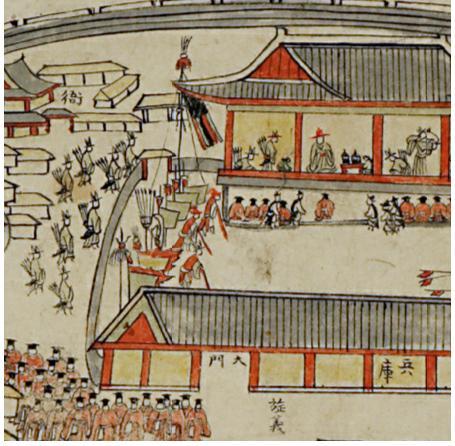 衙
大門
兵庫
旌義